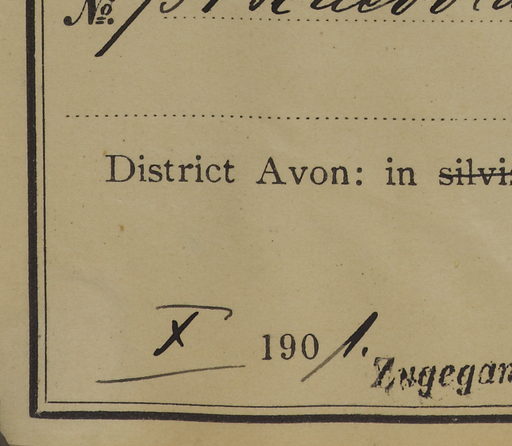 №
District Avon: in silvis
X 1901.
Zugegan